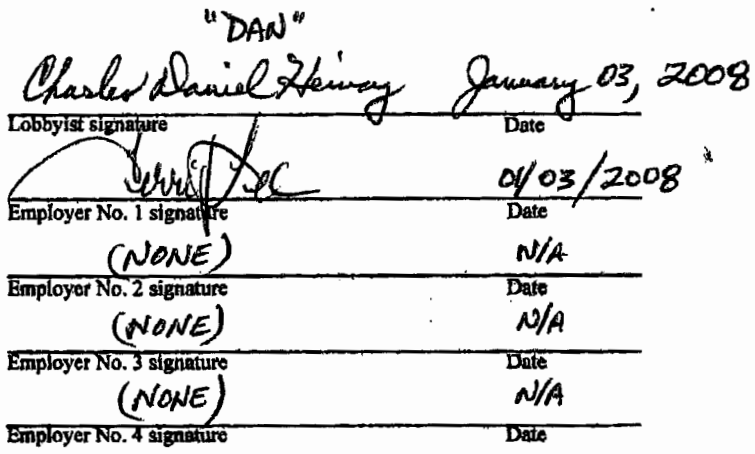 "DAN"
Charles Daniel January 03, 2008
Lobbyist signature Date
01/03/2008
Employer No. 1 signature Date
(NONE) N/A
Employer No. 2 signature Date
(NONE) N/A
Employer No. 3 signature Date
(NONE) N/A
Employer No. 4 signature Date